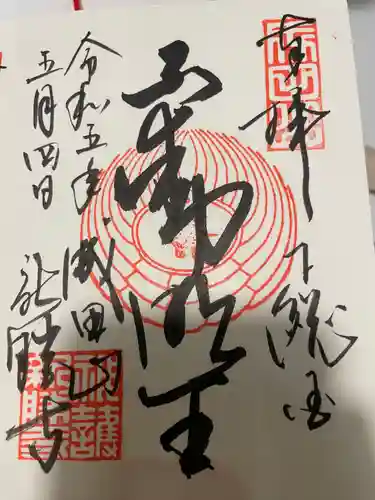 奉拝
下総国
不動明王
令和五年
五月四日
成田山
新勝寺